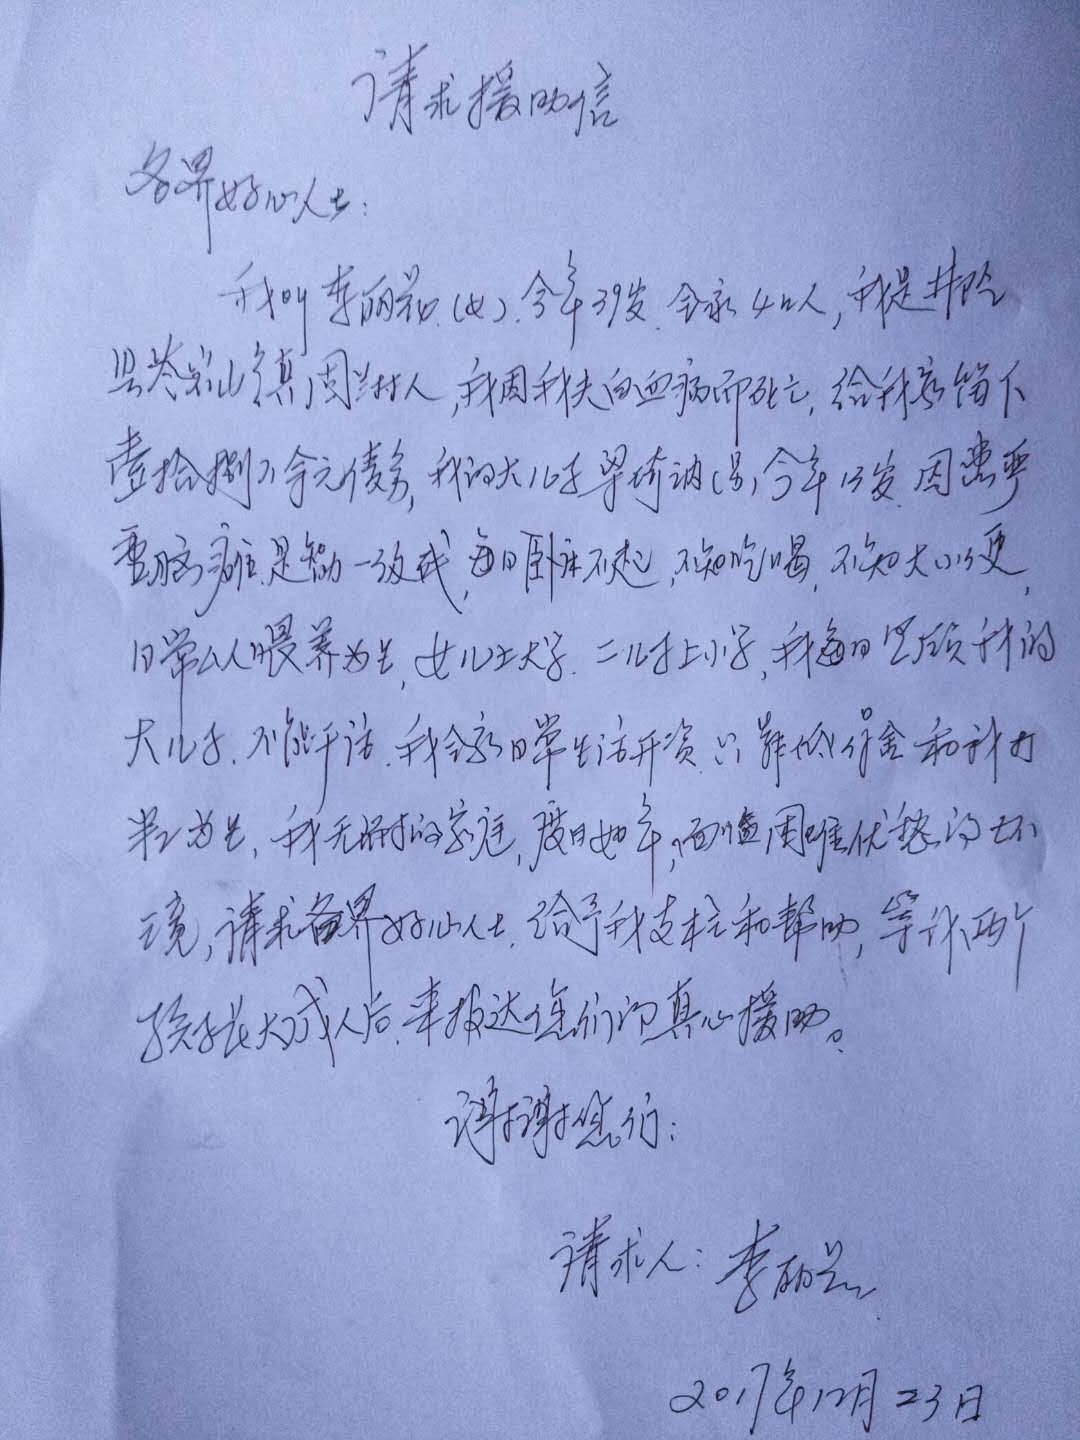 请求援助信
各界好心人士:
我叫李丽(女).今年39岁.全家4口人,我是井陉
县苍岩山镇周村人,我因我夫白血病而死亡,给我家留下
壹拾捌万余元债务,我的大儿子(男)今年13岁.因患严
重脑瘫.是智力一级残,每日卧床不起,不知吃喝,不知大小便,
日常以人喂养为生,女儿上大学.二儿子上小学,我每日照顾我的
大儿子.不能干活.我全家日常生活开资.只靠低保金和我打
为生,我无助的家庭,度日如年,面临困难忧愁的环
境,请求各界好心人士.给予我支柱和帮助,等我两个
孩子长大成人后.来报达您们的真心援助。
谢谢您们:
请求人:李丽
2017年12月23日